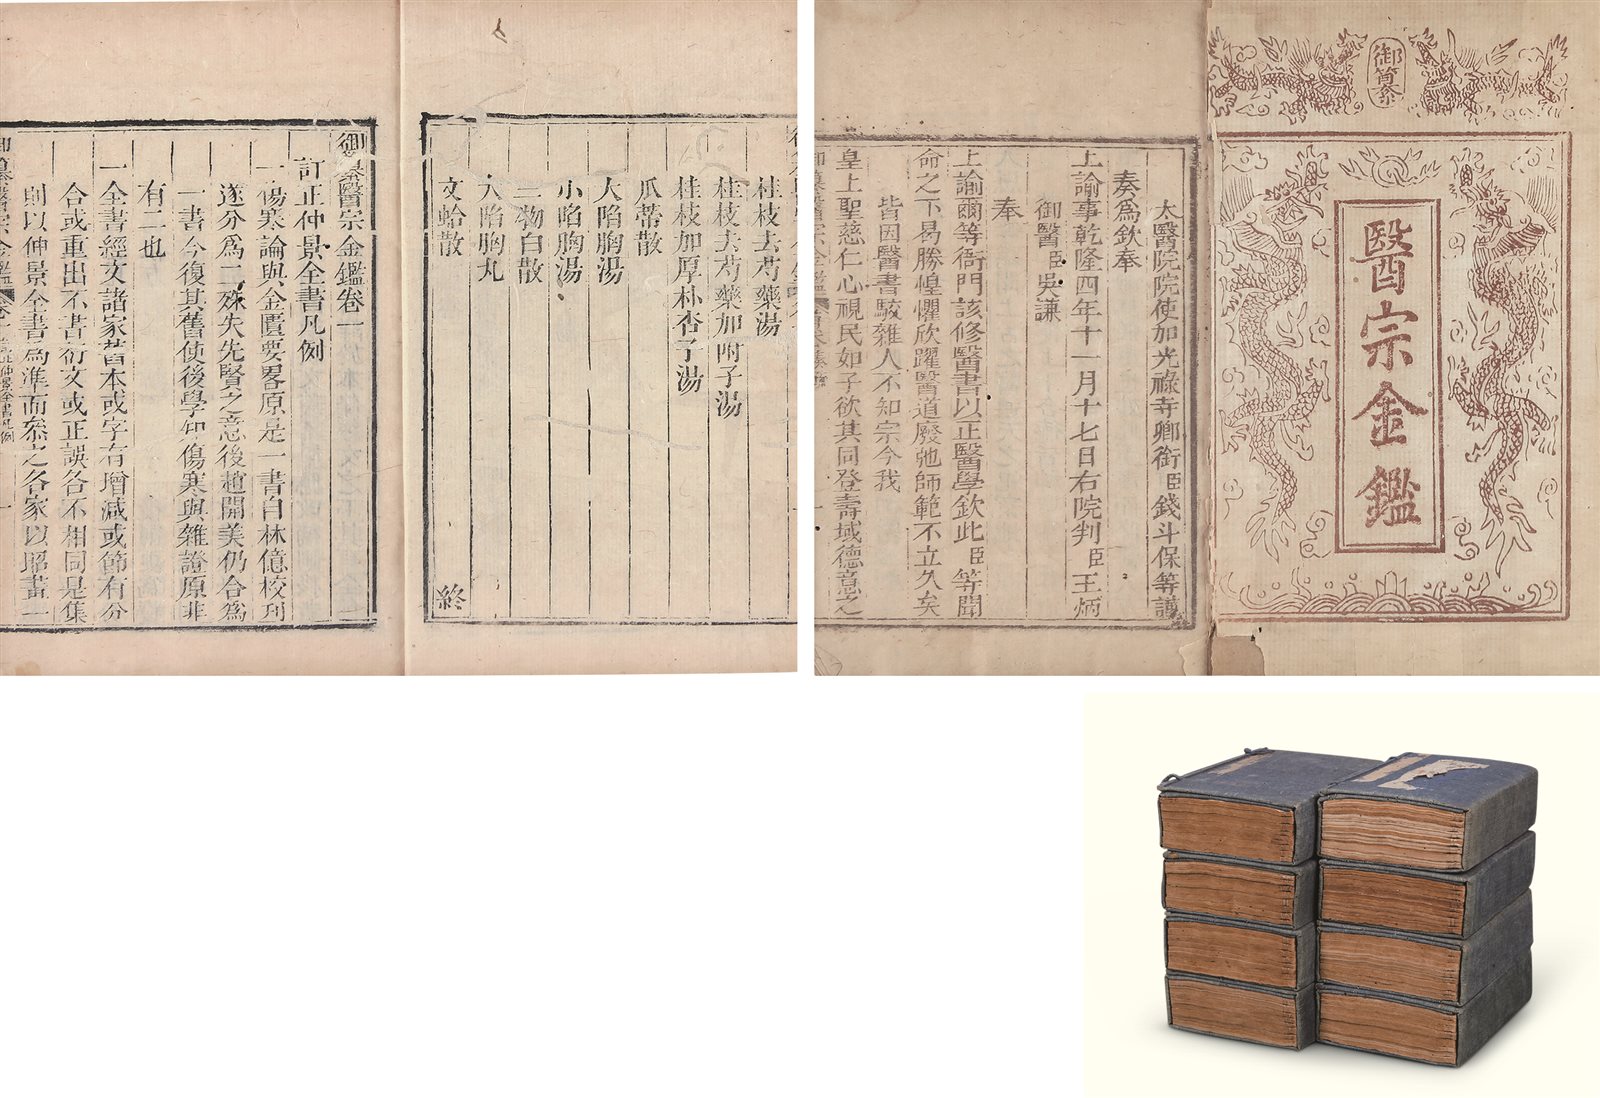 御纂
醫宗金鑑
太醫院院使加光祿寺卿銜臣錢斗保等謹
奏爲欽奉
上諭事乾隆四年十一月十七日右院判臣王炳
御醫臣吳謙
奉
上諭爾等衙門該修醫書以正醫學欽此臣等聞
命之下易勝惶懼欣躍醫道廢弛師範不立久矣
皆因醫書駁雜人不知宗今我
皇上聖慈仁心視民如子欲其同登壽域德意之
桂枝去芍藥湯
桂枝去芍藥加附子湯
桂枝加厚朴杏子湯
瓜蒂散
大陷胸湯
小陷胸湯
三物白散
大陷胸丸
文蛤散
終
御纂醫宗金鑑卷一
訂正仲景全書凡例
一傷寒論與金匱要畧原是一書自林億校刊
遂分爲二殊失先賢之意後趙開美仍合爲
一書今復其舊使後學知傷寒與雜證原非
有二也
一全書經文諸家舊本或字有增減或節有分
合或重出不書衍文或正誤各不相同是集
則以仲景全書爲準而叅之各家以昭畫一